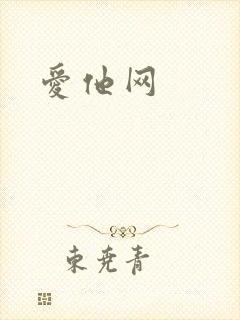 愛他网
東尭青